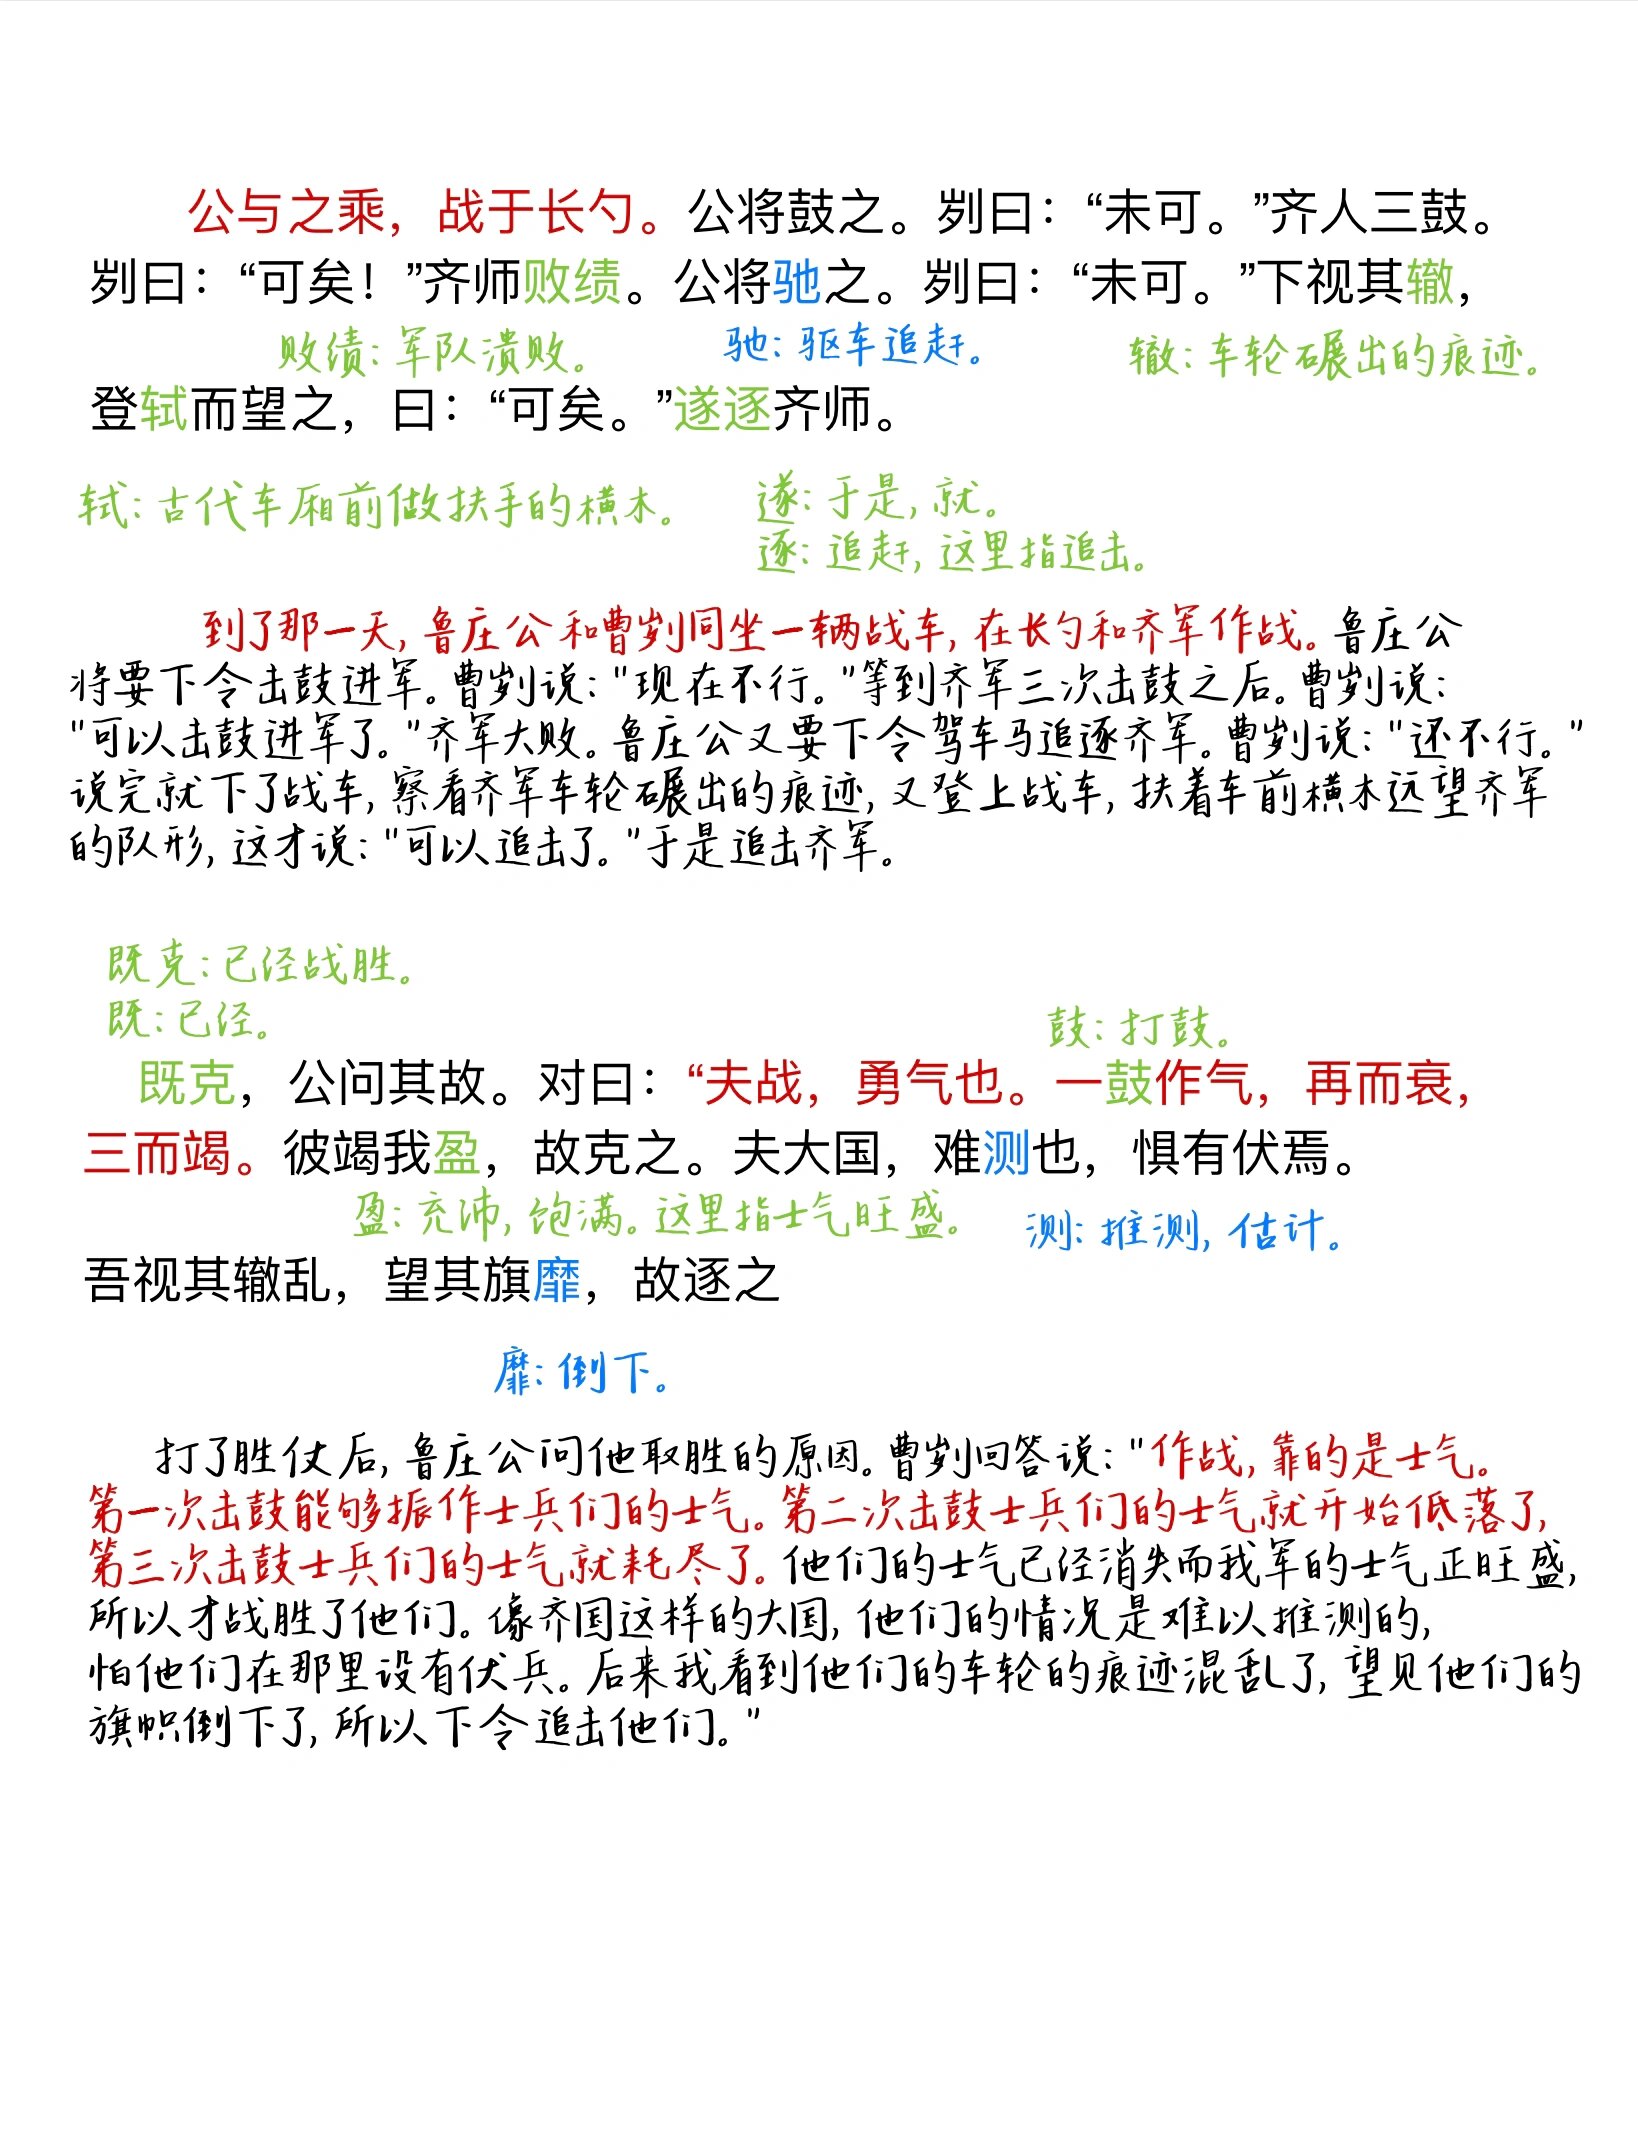 公与之乘，战于长勺。公将鼓之。刿曰：“未可。”齐人三鼓。
刿曰：“可矣！”齐师败绩。公将驰之。刿曰：“未可。”下视其辙，
败绩：军队溃败。 驰：驱车追赶。 辙：车轮碾出的痕迹。
登轼而望之，曰：“可矣。”遂逐齐师。
轼：古代车厢前做扶手的横木。 遂：于是，就。
逐：追赶，这里指追击。
到了那一天，鲁庄公和曹刿同坐一辆战车，在长勺和齐军作战。鲁庄公
将要下令击鼓进军。曹刿说："现在不行。"等到齐军三次击鼓之后。曹刿说：
"可以击鼓进军了。"齐军大败。鲁庄公又要下令驾车马追逐齐军。曹刿说："还不行。"
说完就下了战车，察看齐军车轮碾出的痕迹，又登上战车，扶着车前横木远望齐军
的队形，这才说："可以追击了。"于是追击齐军。
既克：已经战胜。
既：已经。 鼓：打鼓。
既克，公问其故。对曰：“夫战，勇气也。一鼓作气，再而衰，
三而竭。彼竭我盈，故克之。夫大国，难测也，惧有伏焉。
盈：充沛，饱满。这里指士气旺盛。 测：推测，估计。
吾视其辙乱，望其旗靡，故逐之
靡：倒下。
打了胜仗后，鲁庄公问他取胜的原因。曹刿回答说："作战，靠的是士气。
第一次击鼓能够振作士兵们的士气。第二次击鼓士兵们的士气就开始低落了，
第三次击鼓士兵们的士气就耗尽了。他们的士气已经消失而我军的士气正旺盛，
所以才战胜了他们。像齐国这样的大国，他们的情况是难以推测的，
怕他们在那里设有伏兵。后来我看到他们的车轮的痕迹混乱了，望见他们的
旗帜倒下了，所以下令追击他们。"